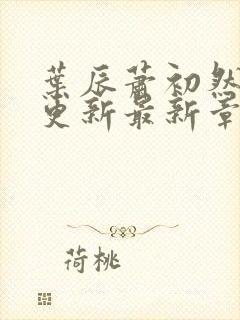 葉辰蕭初然
更新最新章
荷桃